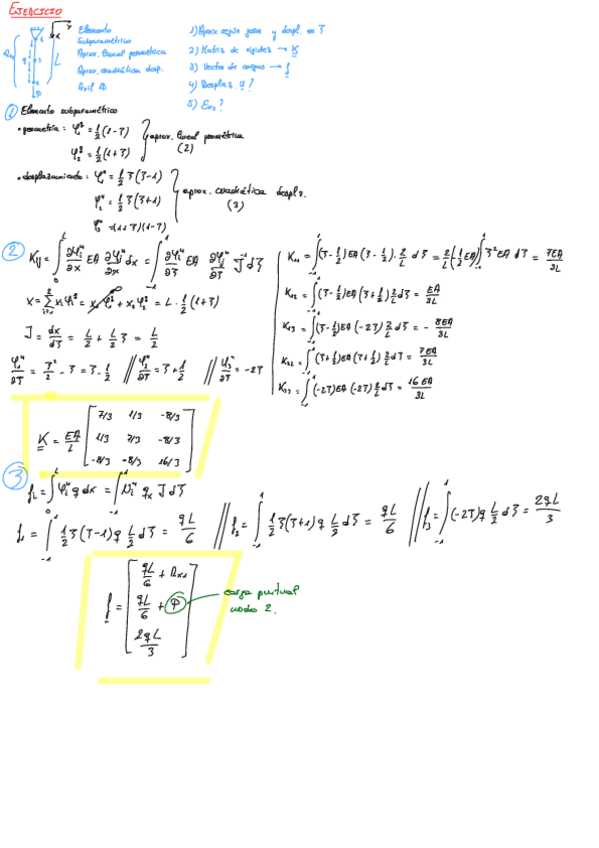 EJERCICIO
Elemento
Subparamétrico
Aprox. lineal geométrica
Aprox. cuadrática desp.
Axil 1D
1) Aprox espacio geom y despl. en ξ
2) Matriz de rigidez → K
3) Vector de cargas → f
4) Desplaz. u?
5) Ex₃?
① Elemento subparamétrico
• geometría: φ₁ᵍ = 1/2 (1-ξ)
φ₂ᵍ = 1/2 (1+ξ)
aprox. lineal geométrica
(2)
• desplazamiento: φ₁ᵘ = 1/2 ξ(ξ-1)
φ₂ᵘ = 1/2 ξ(ξ+1)
φ₃ᵘ = (1+ξ)(1-ξ)
aprox. cuadrática desplz.
(3)
②
Kij = ∫₀ᴸ ∂φiᵘ/∂x EA ∂φjᵘ/∂x dx = ∫₋₁¹ ∂φiᵘ/∂ξ EA ∂φjᵘ/∂ξ J⁻¹ dξ
x = Σ xi φiᵍ = x₁φ₁ᵍ + x₂φ₂ᵍ = L · 1/2 (1+ξ)
J = dx/dξ = L/2 + L/2 ξ = L/2
∂φ₁ᵘ/∂ξ = ξ²/2 - ξ = ξ - 1/2 // ∂φ₂ᵘ/∂ξ = ξ + 1/2 // ∂φ₃ᵘ/∂ξ = -2ξ
K₁₁ = ∫₋₁¹ (ξ-1/2) EA (ξ-1/2) · 2/L dξ = 2/L (1/2 EA) ∫₋₁¹ ξ² EA dξ = 7EA/3L
K₁₂ = ∫₋₁¹ (ξ-1/2) EA (ξ+1/2) 2/L dξ = EA/3L
K₁₃ = ∫₋₁¹ (ξ-1/2) EA (-2ξ) 2/L dξ = - 8EA/3L
K₂₂ = ∫₋₁¹ (ξ+1/2) EA (ξ+1/2) 2/L dξ = 7EA/3L
K₃₃ = ∫₋₁¹ (-2ξ) EA (-2ξ) 2/L dξ = 16EA/3L
K = EA/L
7/3 1/3 -8/3
1/3 7/3 -8/3
-8/3 -8/3 16/3
③
fi = ∫₀ᴸ φiᵘ q dx = ∫₋₁¹ Niᵘ qx J dξ
f₁ = ∫₋₁¹ 1/2 ξ(ξ-1) q L/2 dξ = qL/6 // f₂ = ∫₋₁¹ 1/2 ξ(ξ+1) q L/2 dξ = qL/6 // f₃ = ∫₋₁¹ (-2ξ) q L/2 dξ = 2qL/3
f =
qL/6 + Rx₁
qL/6 + P
2qL/3
carga puntual
nodo 2.